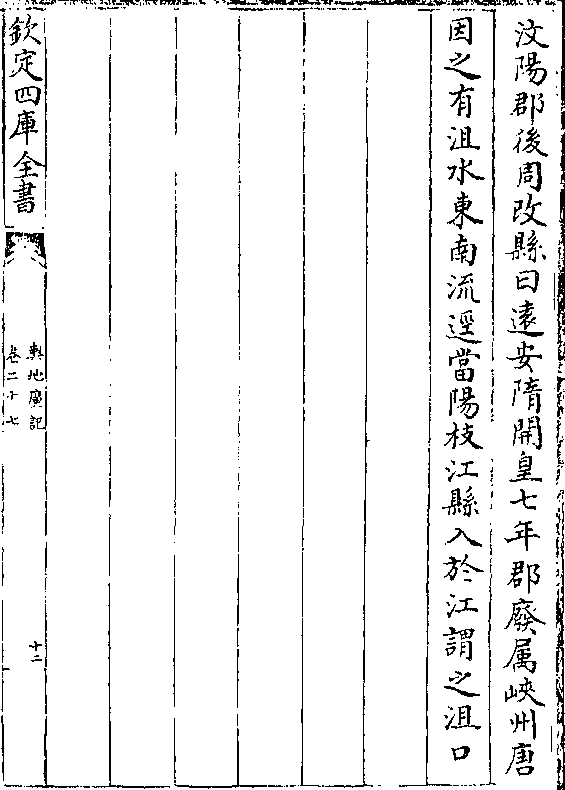 汶陽郡後周改縣曰遠安隋開皇七年郡廢属峽州唐
因之有沮水東南流逕當陽枝江縣入於江謂之沮口
欽定四庫全書
輿地廣記
卷二十七
十二